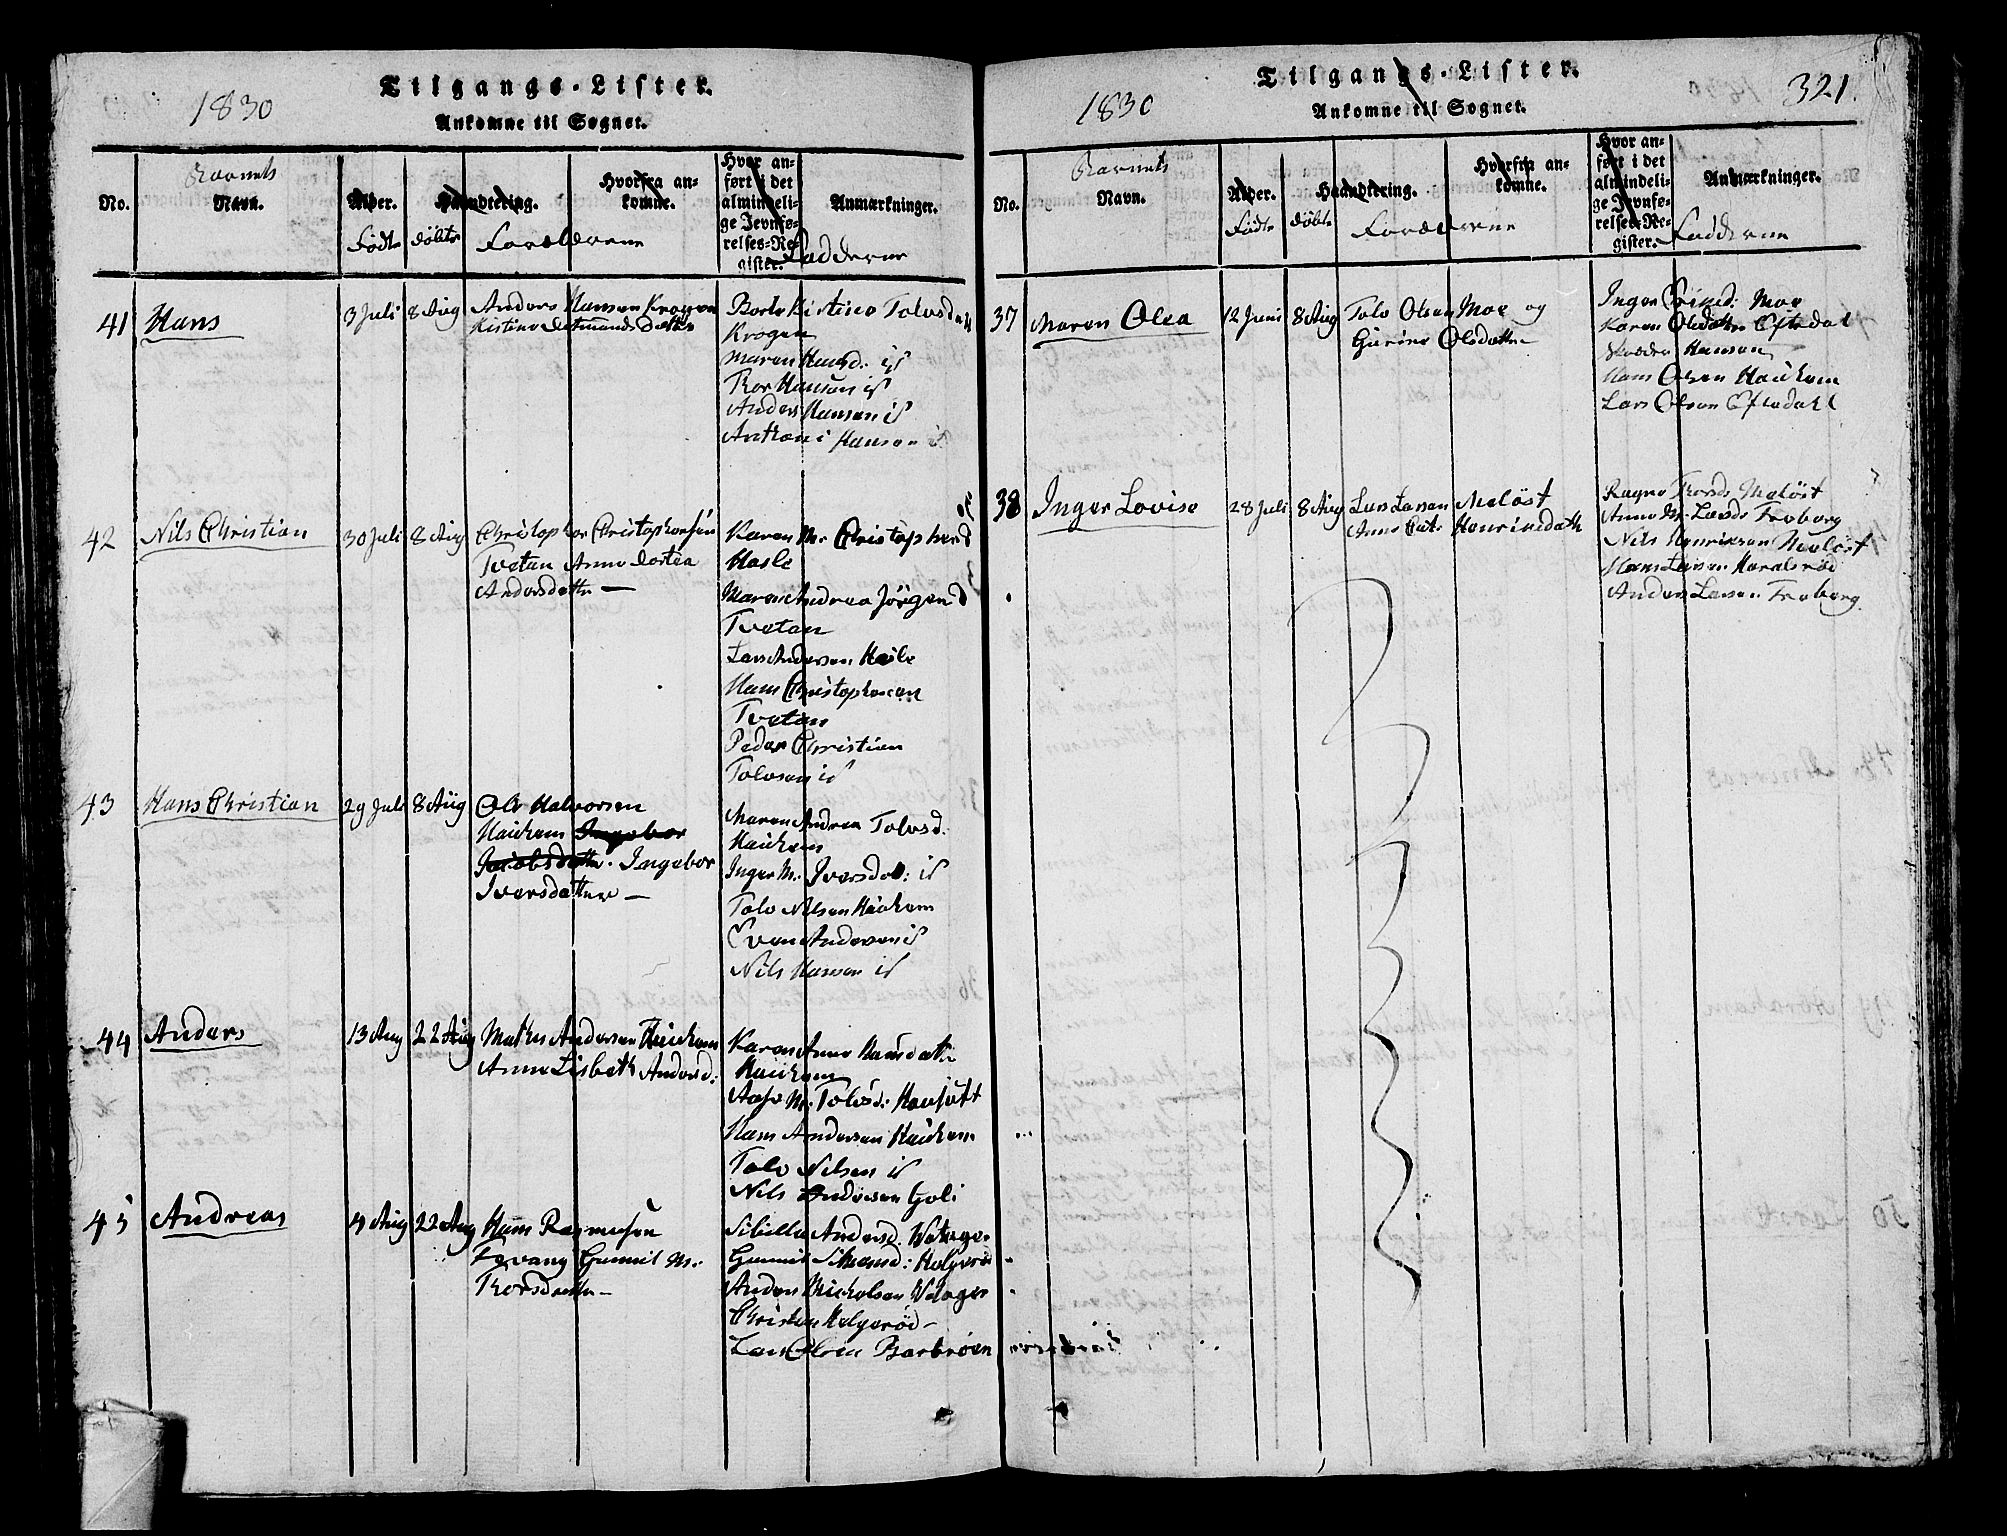 Tilgangs-Lister.
1830
Ankomne til Sognet.
Barnets
No. Navn. Alder. Haandtering. Hvorfra an-
komne. Hvor an-
ført i det
almindeli-
ge Jevnfø-
relses-Re-
gister. Anmærkninger.
Födt döbt Forældrene Fadderne
41 Hans 3 Juli 8 Aug Anders Hansen Krogen
Kistine
Krogen
Maren Hansd: if
Thor Hansen if
Anders Hansen if
Antkoni Hansen if
42 Nils Christian 30 Juli 8 Aug Christopher Christophersen
Tvetan Anne Dortea
Andersdatter —
Karen M. Christophersd
Hasle
Maren Andrea Jörgensd
Tvetan
Lars Andersen Hasle
Hans Christophersen
Tvetan
Peder Christian
Tolvsen if
43 Hans Christian 29 Juli 8 Aug Ole Halvorsen
Haukem Ingebor
Jacobsdatter. Ingebor
Iversdatter —
Maren Andrea Tolvsd.
Haukem
Inger M. Iversdat: if
Tolv Nilsen Haukem
Even Andersen if
Nils Hansen if
44 Anders 13 Aug 22 Aug Mathis Andersen Haukem
Anne Lisbeth Andersd:
Karen Anne Hansdatter
Haukem
M. Tolvsd:
Hans Andersen Haukem
Tolv Nilsen if
Nils Andersen Goli
45 Andreas 4 Aug 22 Aug Hans Rasmusen
Fevang Gunnil M.
Thorsdatter —
Sibille Andersd.
Gunnil Simensd: Helgerød
Anders Nicholsen
Christen Helgerød —
Lars Olsen
Tilgangs-Lister.
321.
1830
Ankomne til Sognet.
Barnets
No. Navn. Alder. Haandtering. Hvorfra an-
komne. Hvor an-
ført i det
almindeli-
ge Jevnfø-
relses-Re-
gister. Anmærkninger.
Födt döbt Forældrene Fadderne
37 Maren Olea 12 Juni 8 Aug Tolv Olsen Moe og
Gurine Olsdatter
Inger Moe
Karen Olsdatter Eftedal
Hansen
Hans Olsen Haukem
Lars Olsen Eftedahl
38 Inger Lovise 28 Juli 8 Aug Lars Larsen Meløst
Anne Cat. Henriksdath
Ragne Thorsd: Meløst
Anne M. Larsd: Freberg
Nils Henriksen Meløst
Hans Larsen Haralsrød
Anders Larsen Freberg